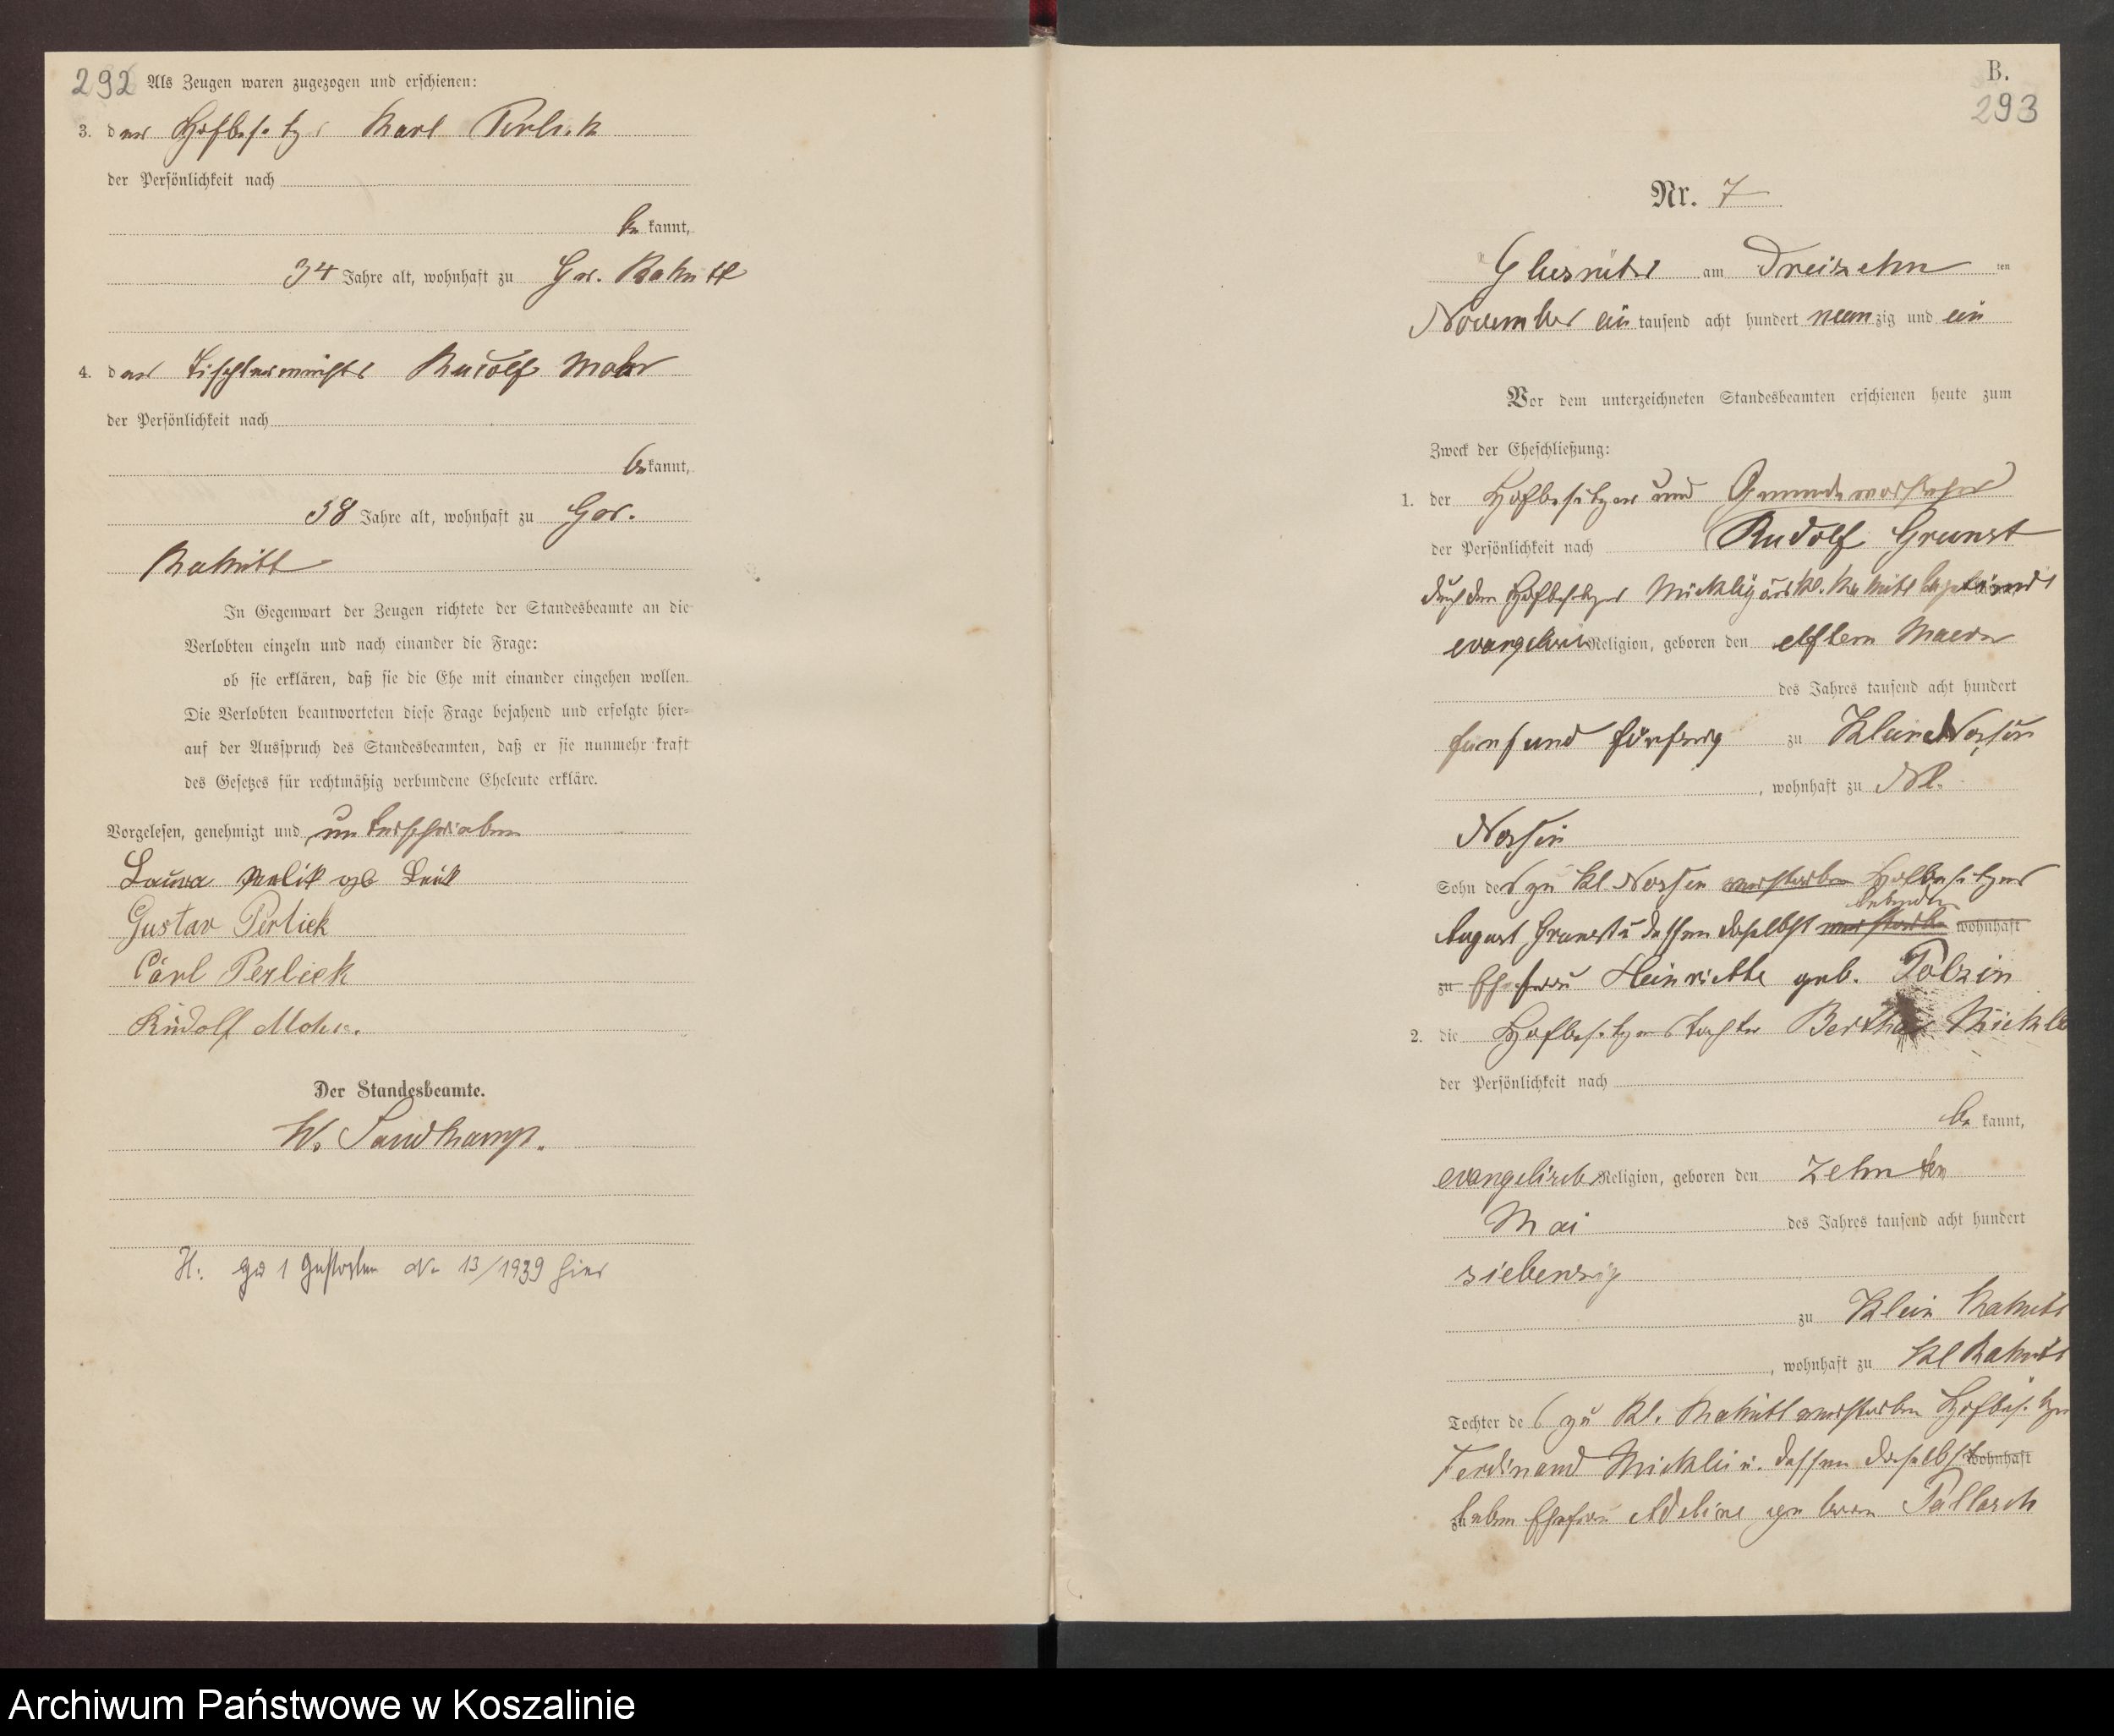 292 Als Zeugen waren zugezogen und erschienen:
3. der Hofbesitzer Karl Perlick
der Persönlichkeit nach
be kannt,
34 Jahre alt, wohnhaft zu Gr. Rakitt
4. der Tischlermeister Rudolf Mohr
der Persönlichkeit nach
be kannt,
38 Jahre alt, wohnhaft zu Gr.
Rakitt
In Gegenwart der Zeugen richtete der Standesbeamte an die
Verlobten einzeln und nach einander die Frage:
ob sie erklären, daß sie die Ehe mit einander eingehen wollen.
Die Verlobten beantworteten diese Frage bejahend und erfolgte hier-
auf der Ausspruch des Standesbeamten, daß er sie nunmehr kraft
des Gesetzes für rechtmäßig verbundene Eheleute erkläre.
Vorgelesen, genehmigt und unterschrieben
Laura Perlik geb
Gustav Perlick
Carl Perlick
Rudolf Mohr.
Der Standesbeamte.
W. Sandkamp.
H. zu 1 Gestorben No 13/1939 hier
B.
293
Nr. 7
am Dreizehn ten
November ein tausend acht hundert neun zig und ein
Vor dem unterzeichneten Standesbeamten erschienen heute zum
Zweck der Eheschließung:
1. der Hofbesitzer und Gemeindevorsteher
der Persönlichkeit nach Rudolf Granst
durch den Hofbesitzer Mickley aus Kl. Rakitt
evangelischer Religion, geboren den elften Maerz
des Jahres tausend acht hundert
fünf und fünfzig zu Klein Nossin
, wohnhaft zu Kl.
Nossin
Sohn des zu Kl Nossin verstorben Hofbesitzers
lebenden
August Granst u dessen daselbst verstorben wohnhaft
zu Ehefrau Heinriette geb. Polzin
2. die Hofbesitzerstochter Bertha
der Persönlichkeit nach
be kannt,
evangelischer Religion, geboren den zehnten
Mai des Jahres tausend acht hundert
siebenzig
zu Klein Rakitt
, wohnhaft zu Kl Rakitt
Tochter des zu Kl. Rakitt verstorben Hofbesitzer
Ferdinand u. dessen daselbst wohnhaft
zu leben Ehefrau Adeline geboren Pallasch
Archiwum Państwowe w Koszalinie